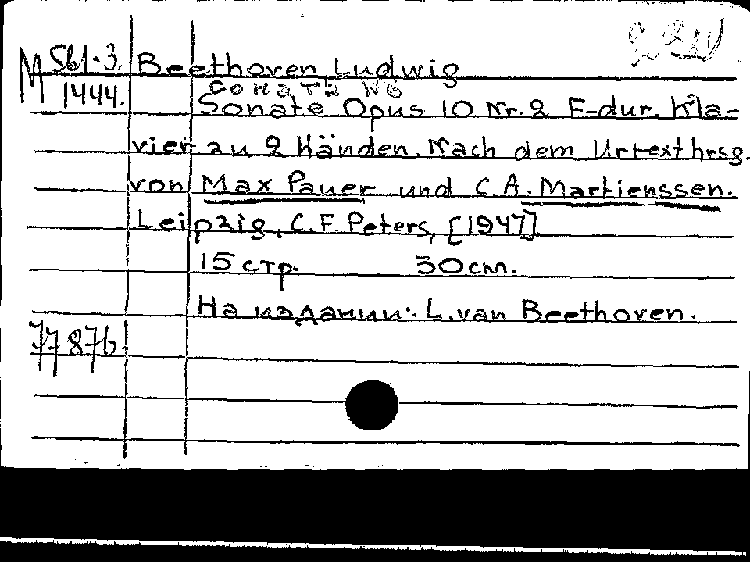 М 561-3
1444.
Beethoven, Ludwig
Соната №6
Sonate Opus 10 Nr. 2 F-dur. Kla-
vier zu 2 Händen. Nach dem Urtext hrsg.
von Max Pauer und C.A. Martienssen.
Leipzig, C.F. Peters, [1947]
15 стр. 30 см.
На издании: L. van Beethoven.
77876